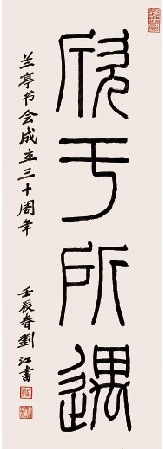 欣于所遇
兰亭书会成立三十周年
壬辰春劉江書